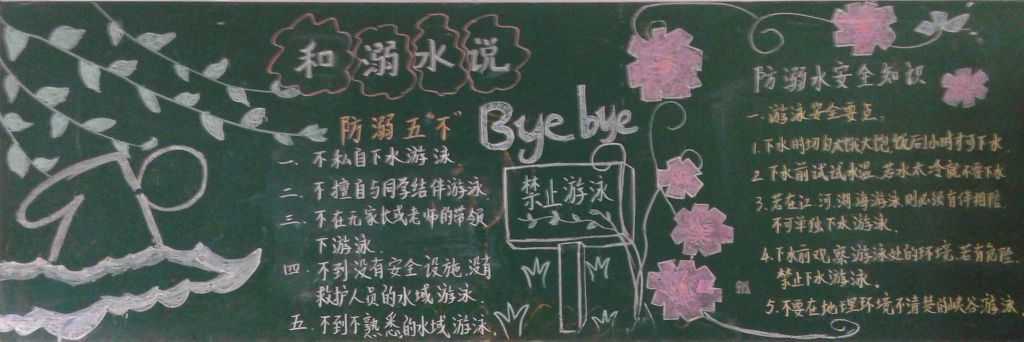 和溺水说
Bye bye
防溺五"不"
一、不私自下水游泳
二、不擅自与同学结伴游泳
三、不在无家长或老师的带领
下游泳
四、不到没有安全设施、没有
救护人员的水域游泳
五、不到不熟悉的水域游泳。
禁止游泳
防溺水安全知识
一、游泳安全要点:
1.下水时切勿太饿太饱饭后1小时才可下水
2.下水前试试水温,若水太冷就不要下水
3.若在江、河、湖、海游泳则必须有伴相陪
不可单独下水游泳.
4.下水前观察游泳处的环境,若有危险
禁止下水游泳.
5.不要在地理环境不清楚的峡谷游泳.